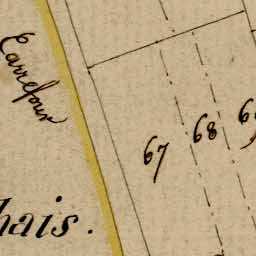 Carrefour
67 68
hais.